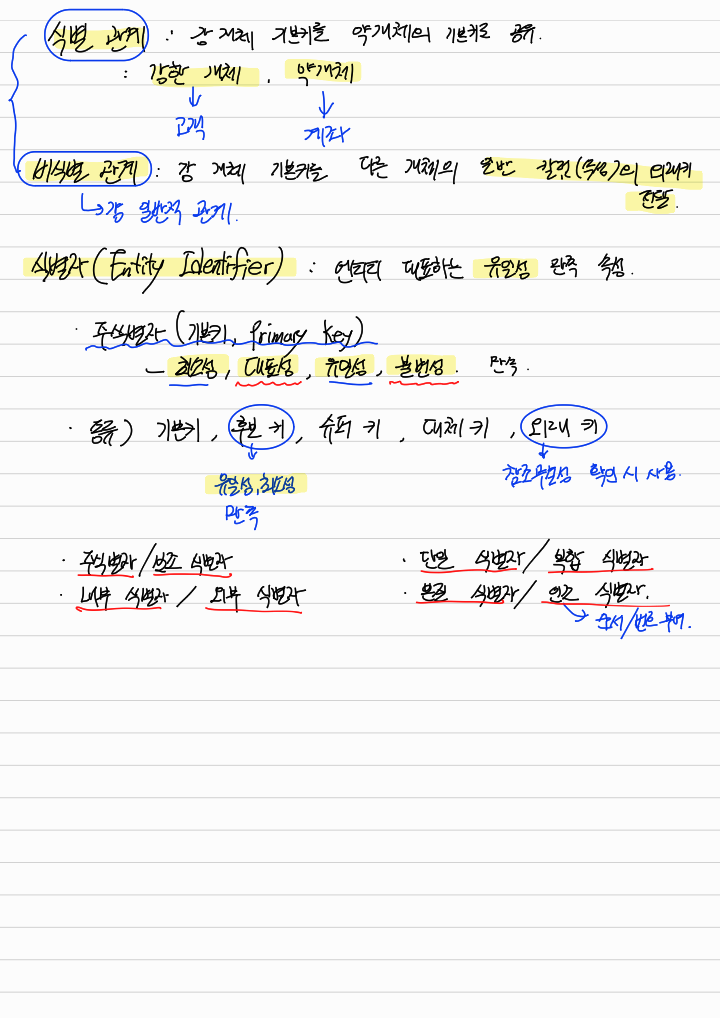 식별 관계 : 강 개체 기본키를 약개체의 기본키로 공유.
: 강한 개체, 약개체
고객 계좌
비식별 관계 : 강 개체 기본키를 다른 개체의 일반 칼럼(속성)의 외래키
전달.
일반적 관계.
식별자(Entity Identifier) : 엔티티 대표하는 유일성 만족 속성.
· 주식별자 (기본키, Primary Key)
- 최소성, 대표성, 유일성, 불변성. 만족.
· 종류) 기본키, 후보 키, 슈퍼 키, 대체 키, 외래 키
유일성, 최소성 참조무결성 확인 시 사용.
만족
· 주식별자/보조 식별자 · 단일 식별자/복합 식별자
· 내부 식별자 / 외부 식별자 · 본질 식별자/인조 식별자.
순서/번호 부여.